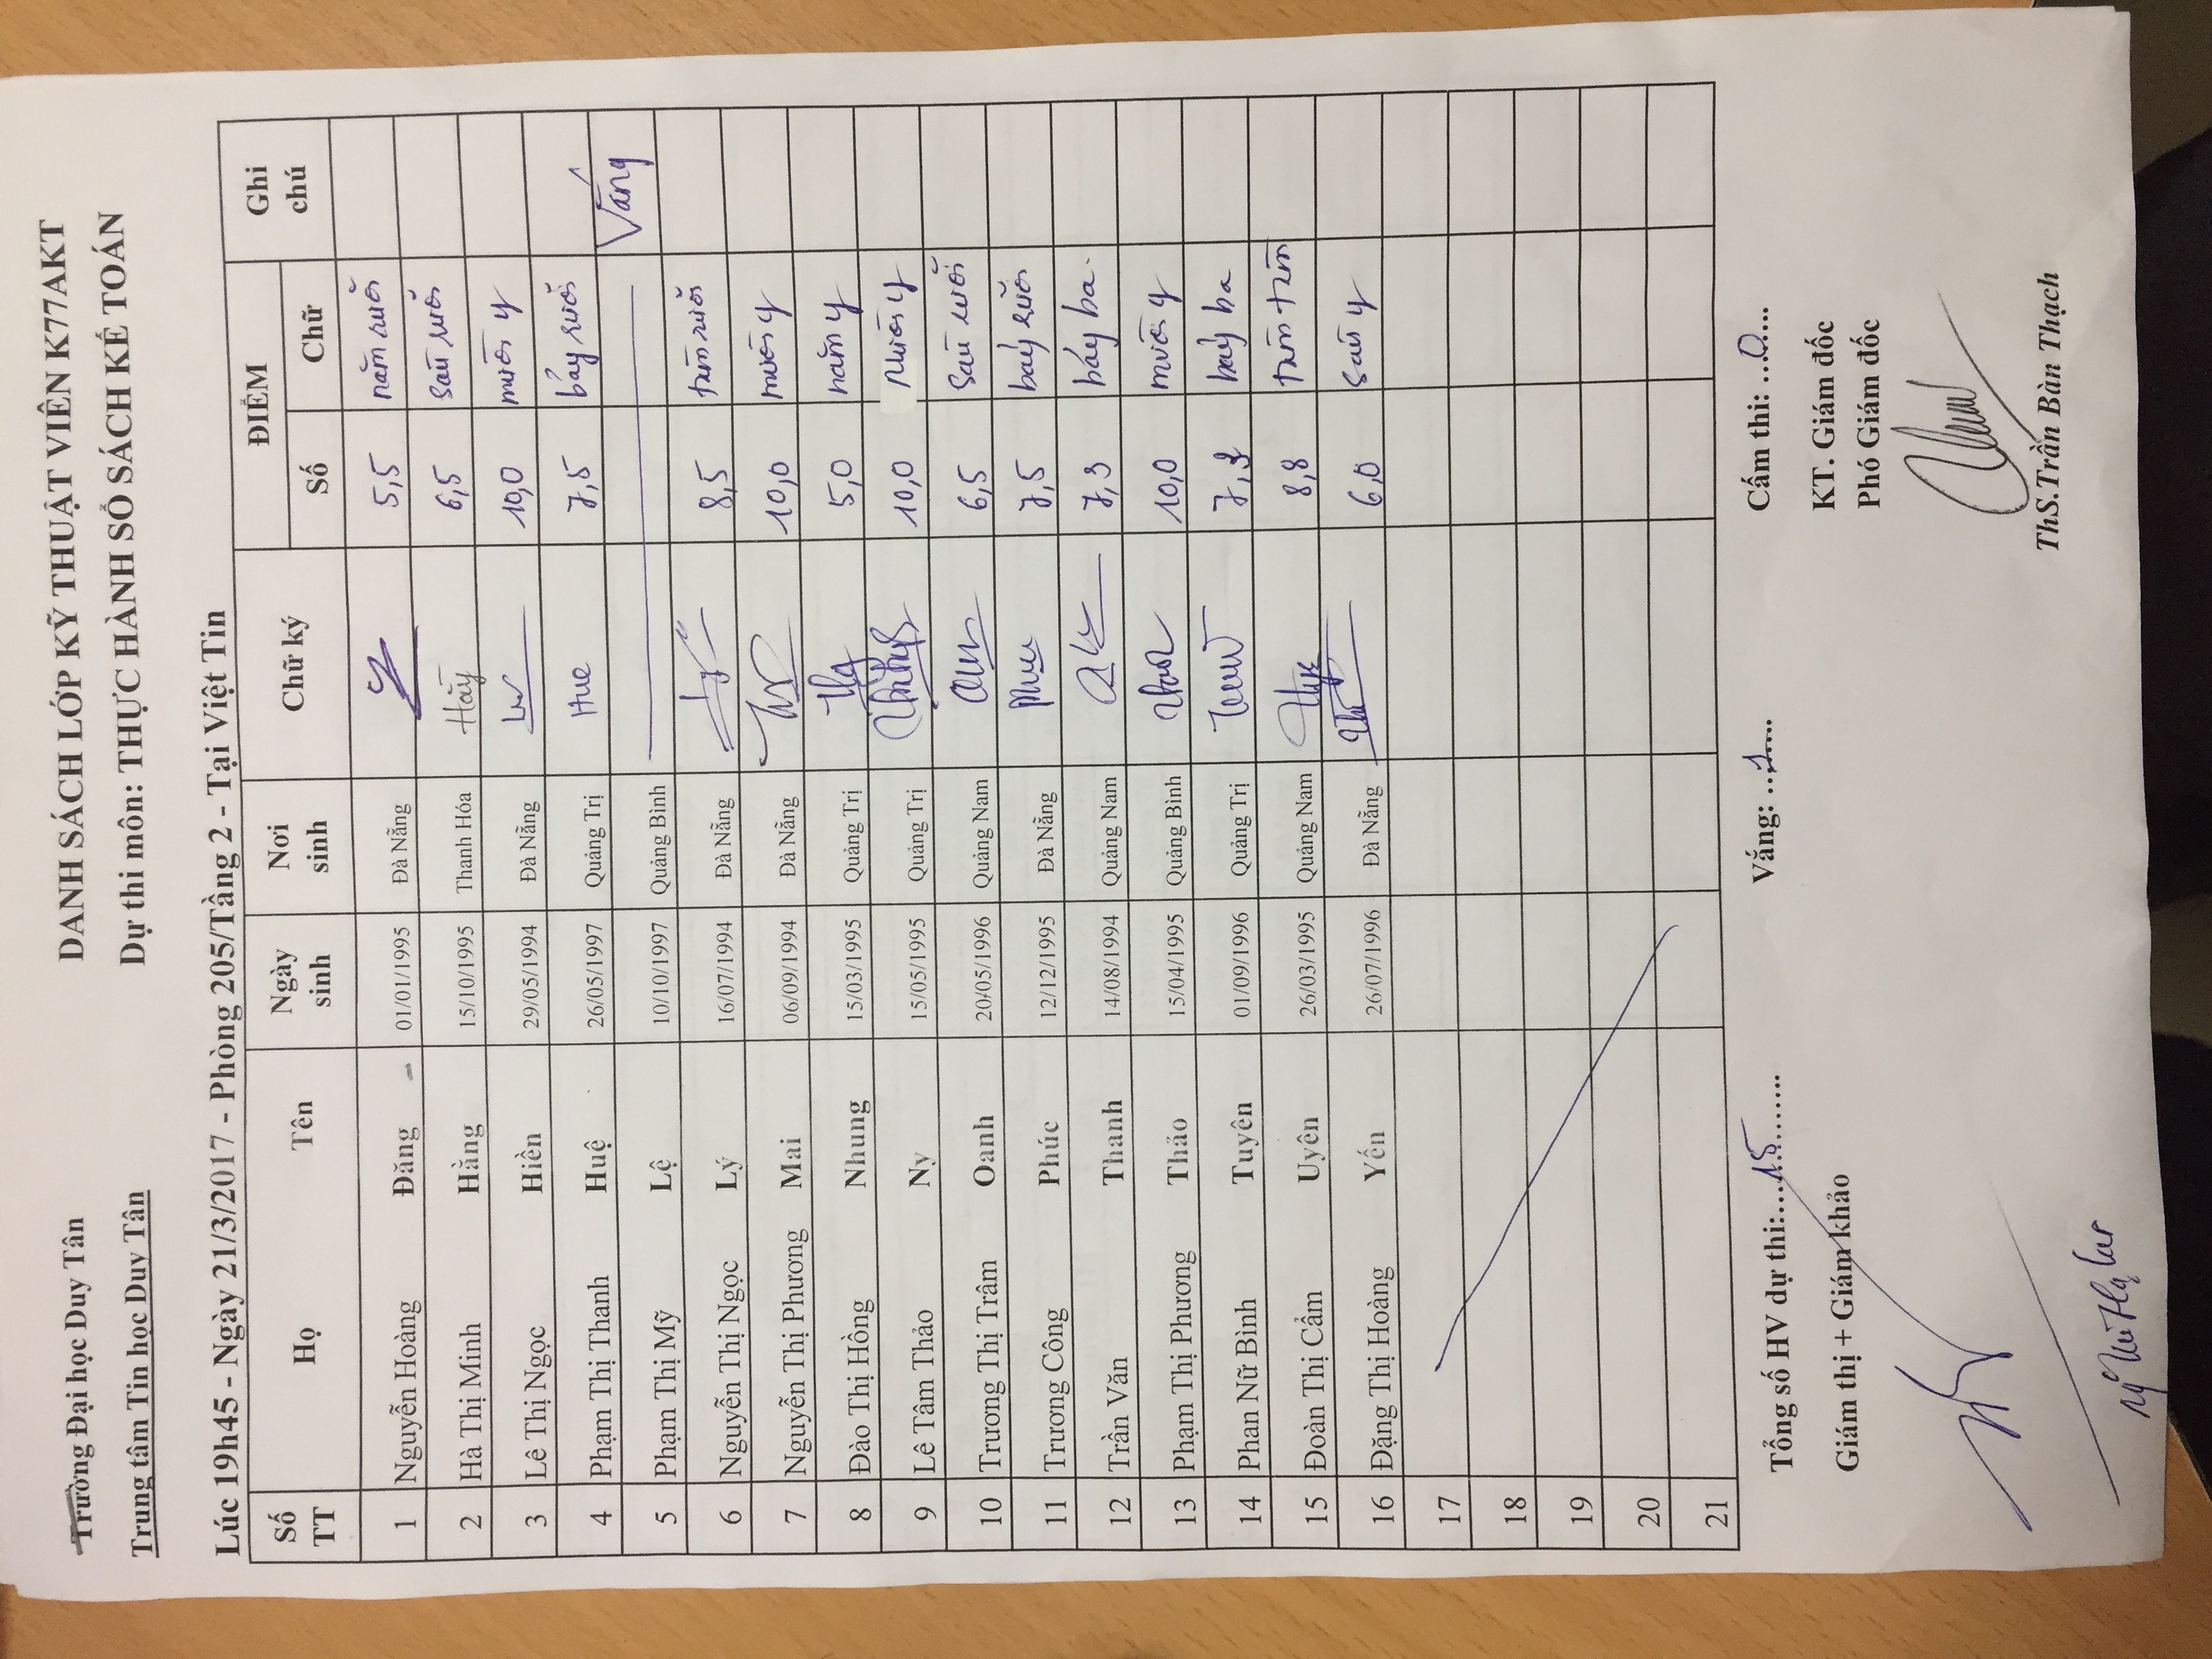 Trường Đại học Duy Tân
Trung tâm Tin học Duy Tân
DANH SÁCH LỚP KỸ THUẬT VIÊN K77AKT
Dự thi môn: THỰC HÀNH SỔ SÁCH KẾ TOÁN
Lúc 19h45 - Ngày 21/3/2017 - Phòng 205/Tầng 2 - Tại Việt Tin
Số TT Họ Tên Ngày sinh Nơi sinh Chữ ký ĐIỂM Số Chữ Ghi chú
1 Nguyễn Hoàng Đăng 01/01/1995 Đà Nẵng 5,5 năm rưỡi
2 Hà Thị Minh Hằng 15/10/1995 Thanh Hóa Hằng 6,5 sáu rưỡi
3 Lê Thị Ngọc Hiền 29/05/1994 Đà Nẵng 10,0 mười y
4 Phạm Thị Thanh Huệ 26/05/1997 Quảng Trị Hue 7,5 bảy rưỡi
5 Phạm Thị Mỹ Lệ 10/10/1997 Quảng Bình Vắng
6 Nguyễn Thị Ngọc Lý 16/07/1994 Đà Nẵng 8,5 tám rưỡi
7 Nguyễn Thị Phương Mai 06/09/1994 Đà Nẵng 10,0 mười y
8 Đào Thị Hồng Nhung 15/03/1995 Quảng Trị 5,0 năm y
9 Lê Tâm Thảo Ny 15/05/1995 Quảng Trị 10,0 Mười y
10 Trương Thị Trâm Oanh 20/05/1996 Quảng Nam 6,5 sáu rưỡi
11 Trương Công Phúc 12/12/1995 Đà Nẵng 7,5 bảy rưỡi
12 Trần Văn Thanh 14/08/1994 Quảng Nam 7,3 bảy ba.
13 Phạm Thị Phương Thảo 15/04/1995 Quảng Bình 10,0 mười y
14 Phan Nữ Bình Tuyên 01/09/1996 Quảng Trị 7,3 bảy ba
15 Đoàn Thị Cẩm Uyên 26/03/1995 Quảng Nam 8,8 tám tám
16 Đặng Thị Hoàng Yến 26/07/1996 Đà Nẵng 6,0 sáu y
17
18
19
20
21
Tổng số HV dự thi:....15........ Vắng: ..1.... Cấm thi: ...0....
Giám thị + Giám khảo KT. Giám đốc
Phó Giám đốc
ThS.Trần Bàn Thạch